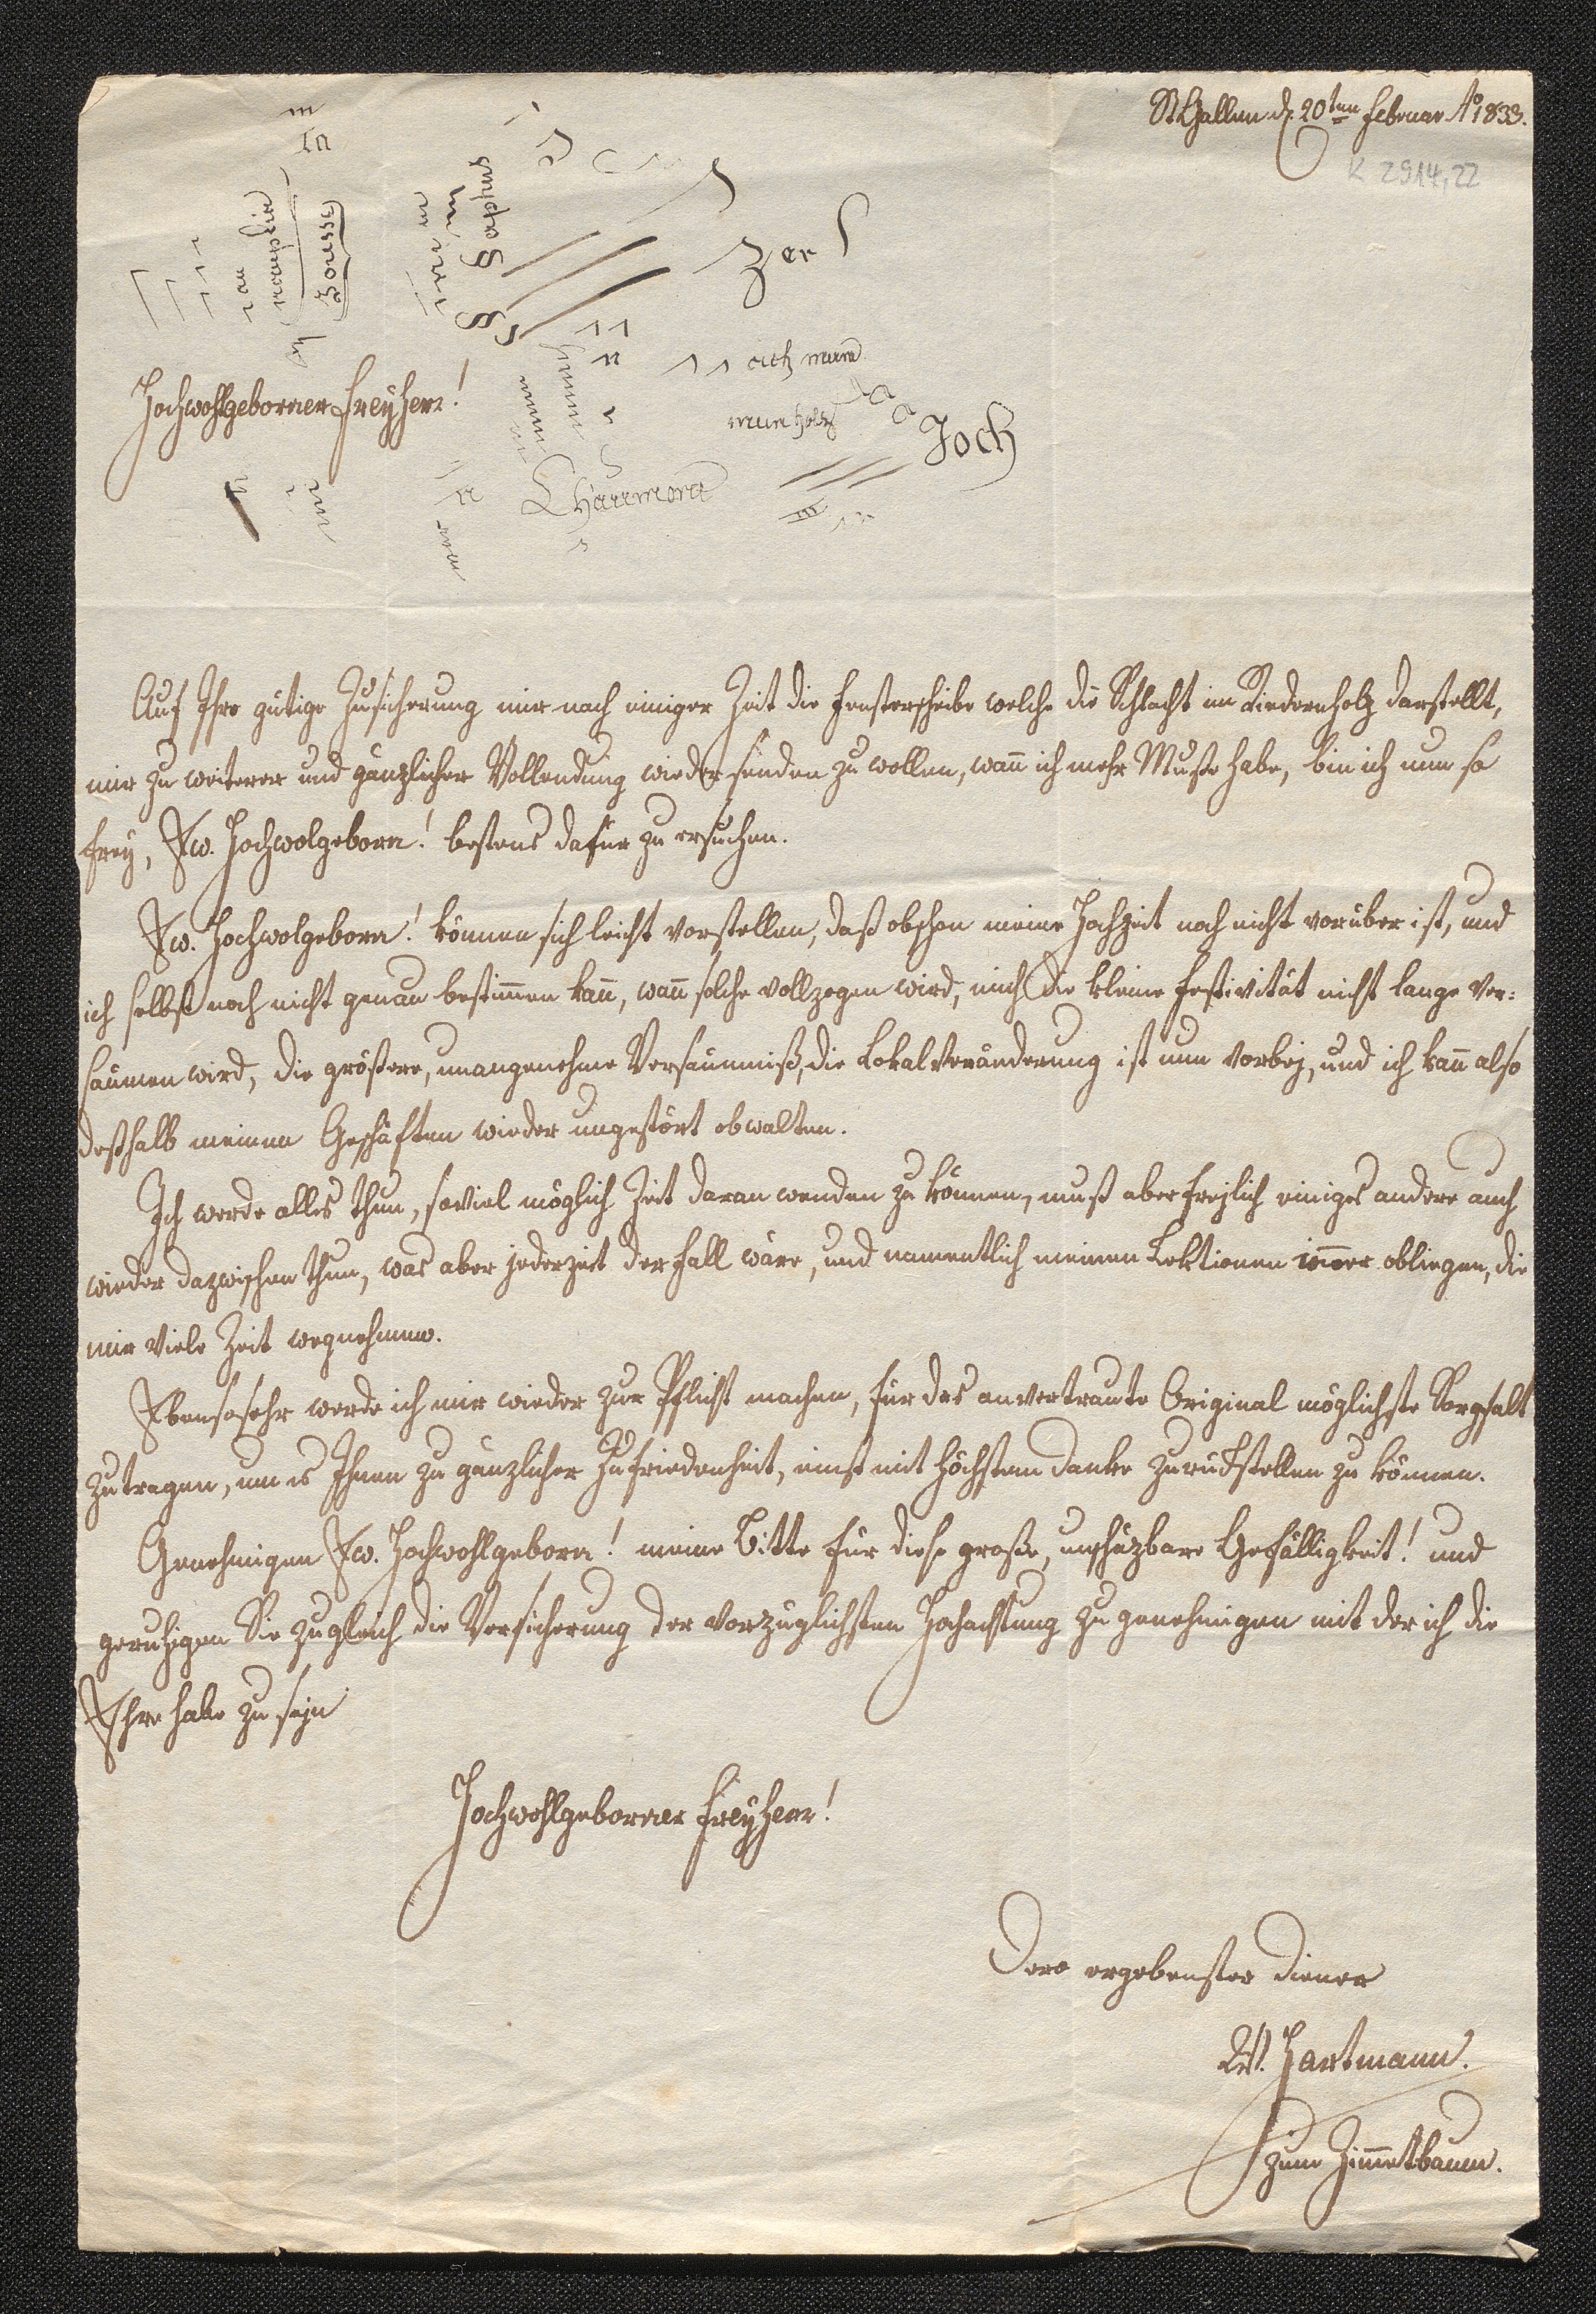 St Gallen d. 20ten Februar Ao 1833.
K 2914,22
Hochwohlgeborner Freyherr!
zer
ach mum
mum holz
Joch
Auf Ihre gütige Zusicherung mir nach einiger Zeit die Fensterscheibe welche die Schlacht im Riedernholz darstellt,
mir zu weiterer und gänzlicher Vollendung wieder senden zu wollen, wan̄ ich mehr Muße habe, bin ich nun so
frey, Ew. Hochwolgeborn! bestens dafür zu ersuchen.
Ew. Hochwolgeborn! können sich leicht vorstellen, daß obschon meine Hochzeit noch nicht vorüber ist, und
ich selbst noch nicht genau bestim̄en kan̄, wan̄ solche vollzogen wird, mich die kleine Festivität nicht lange ver:
säumen wird, die größere, unangenehme Versäumniß, die Lokalveränderung ist nun vorbej, und ich kan̄ also
deßhalb meinen Geschäften wieder ungestört obwalten.
Ich werde alles thun, soviel möglich Zeit daran wenden zu können, muß aber frejlich einiges andere auch
wieder dazwischen thun, was aber jederzeit der Fall wäre, und namentlich meinen Lektionen im̄er obliegen, die
mir viele Zeit wegnehmen.
Ebensosehr werde ich mir wieder zur Pflicht machen, für das anvertraute Original möglichste Sorgfalt
zu tragen, um es Ihnen zu gänzlicher Zufriedenheit, einst mit höchstem Danke zurückstellen zu können.
Genehmigen Ew. Hochwohlgeborn! meine Bitte für diese große, unschäzbare Gefälligkeit! und
geruhigen Sie zugleich die Versicherung der vorzüglichsten Hochachtung zu genehmigen mit der ich die
Ehre habe zu sejn
Hochwohlgeborner Freyherr!
Dero ergebenster Diener
W. Hartmann.
zum Zim̄etbaum.